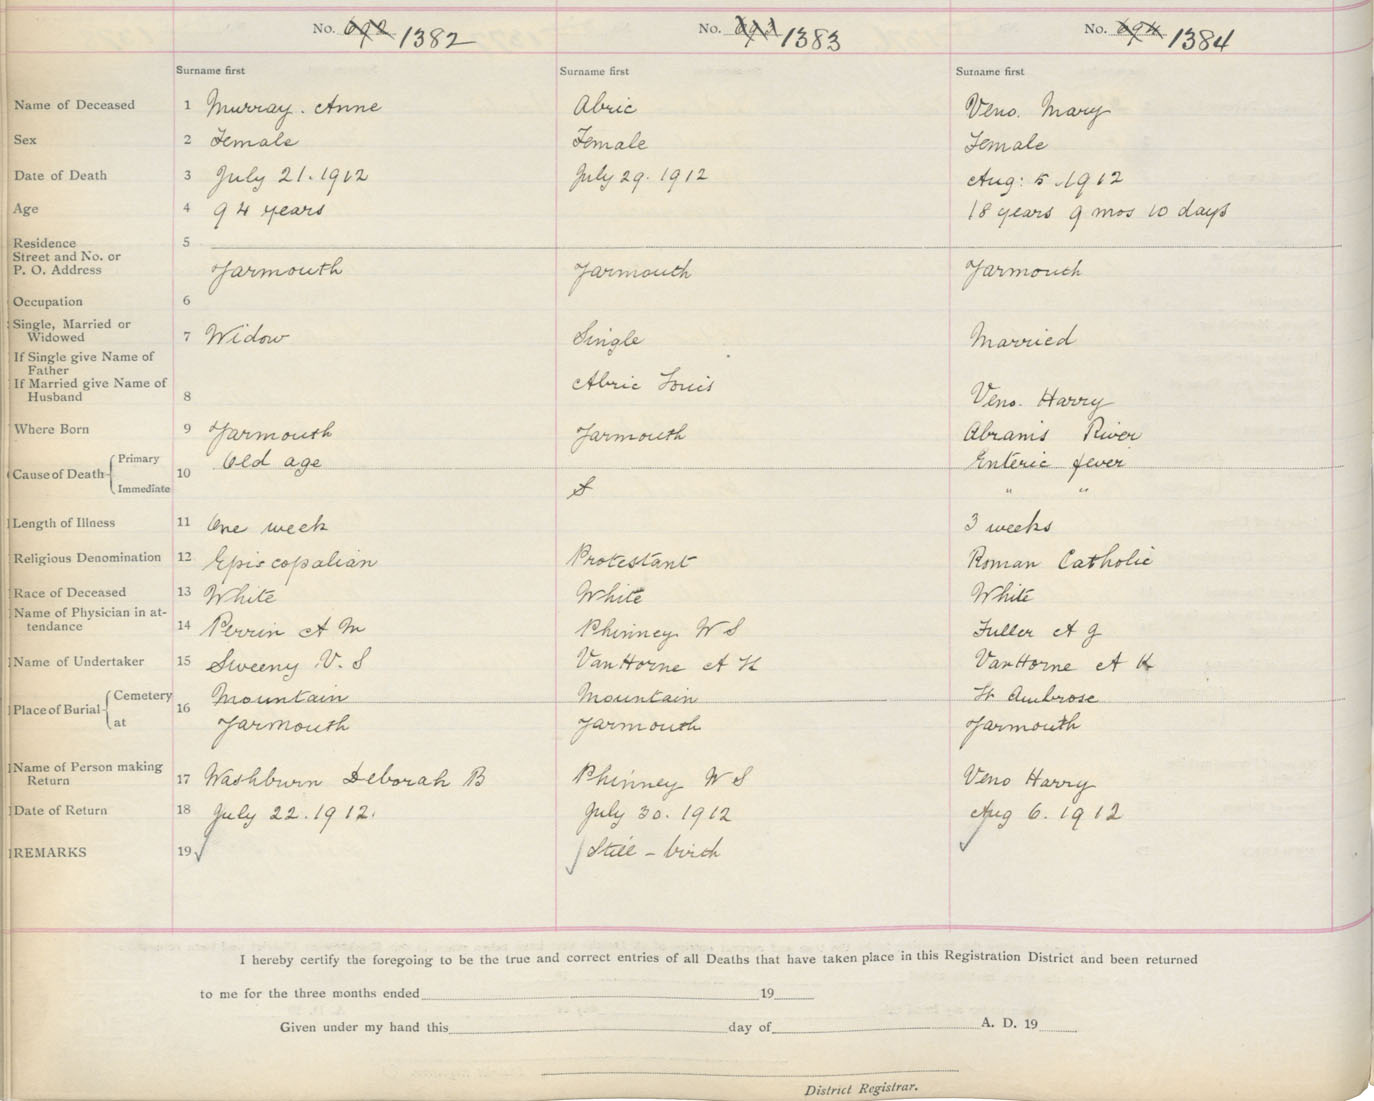 No. 692 1382 No. 693 1383 No. 694 1384
Surname first Surname first Surname first
Name of Deceased 1 Murray. Anne Abric Veno. Mary
Sex 2 Female Female Female
Date of Death 3 July 21. 1912 July 29. 1912 Aug: 5. 1912
Age 4 94 years 18 years 9 mos 10 days
Residence 5
Street and No. or
P. O. Address Yarmouth Yarmouth Yarmouth
Occupation 6
Single, Married or
Widowed 7 Widow Single Married
If Single give Name of
Father
If Married give Name of Abric Louis
Husband 8 Veno. Harry
Where Born 9 Yarmouth Yarmouth Abram's River
Cause of Death 10 Primary Old age Enteric fever
Immediate S " "
Length of Illness 11 One week 3 weeks
Religious Denomination 12 Episcopalian Protestant Roman Catholic
Race of Deceased 13 White White White
Name of Physician in at-
tendance 14 Perrin A M Phinney W S Fuller A J
Name of Undertaker 15 Sweeny V. S VanHorne A K VanHorne A K
Place of Burial 16 Cemetery Mountain Mountain St Ambrose
at Yarmouth Yarmouth Yarmouth
Name of Person making
Return 17 Washburn Deborah B Phinney W S Veno Harry
Date of Return 18 July 22. 1912. July 30. 1912 Aug 6. 1912
REMARKS 19 Still - birth
I hereby certify the foregoing to be the true and correct entries of all Deaths that have taken place in this Registration District and been returned
to me for the three months ended 19
Given under my hand this day of A. D. 19
District Registrar.